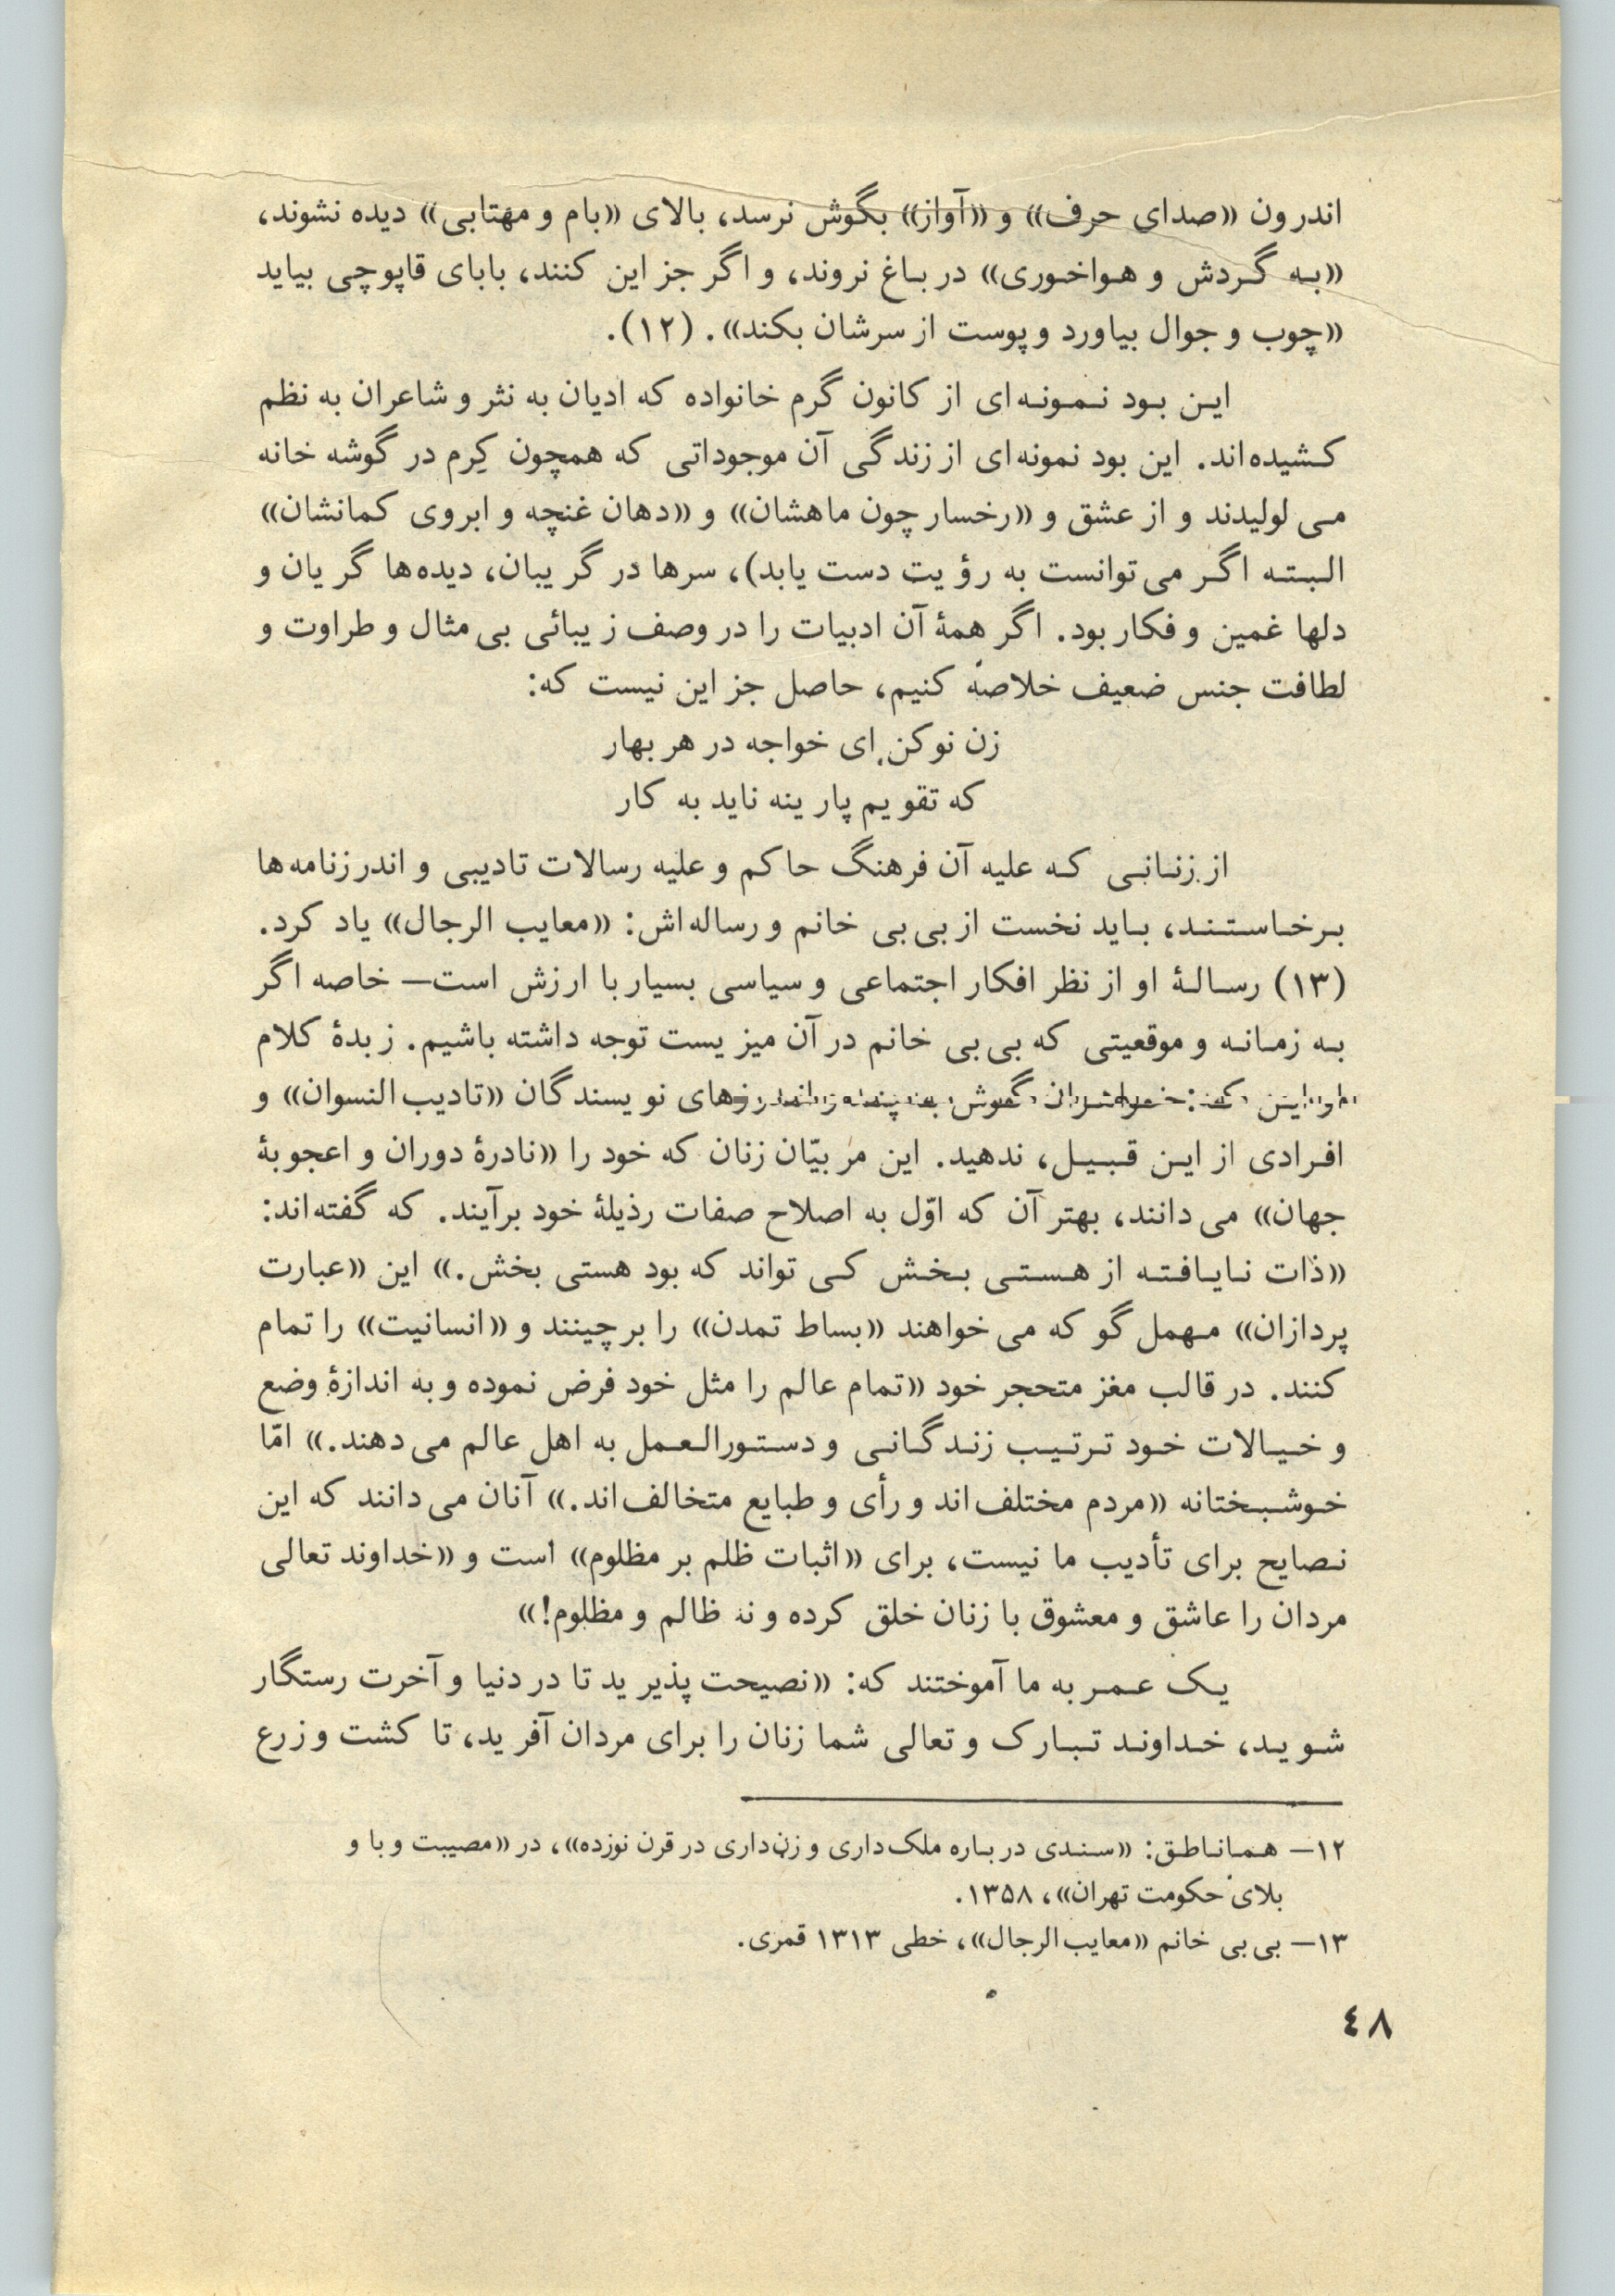 اندرون «صدای حرف» و «آواز» بگوش نرسد، بالای «بام و مهتابی» دیده نشوند،
«به گردش و هواخوری» در باغ نروند، و اگر جز این کنند، بابای قاپوچی بیاید
«چوب و جوال بیاورد و پوست از سرشان بکند». (۱۲).
این بود نمونه‌ای از کانون گرم خانواده که ادیان به نثر و شاعران به نظم
کشیده‌اند. این بود نمونه‌ای از زندگی آن موجوداتی که همچون کِرم در گوشه خانه
می لولیدند و از عشق و «رخسار چون ماهشان» و «دهان غنچه و ابروی کمانشان»
البته اگر می توانست به رؤیت دست یابد)، سرها در گریبان، دیده‌ها گریان و
دلها غمین و فکار بود. اگر همهٔ آن ادبیات را در وصف زیبائی بی مثال و طراوت و
لطافت جنس ضعیف خلاصه کنیم، حاصل جز این نیست که:
زن نو کن ای خواجه در هر بهار
که تقویم پارینه ناید به کار
از زنانی که علیه آن فرهنگ حاکم و علیه رسالات تادیبی و اندرزنامه‌ها
برخاستند، باید نخست از بی بی خانم و رساله‌اش: «معایب الرجال» یاد کرد.
(۱۳) رسالهٔ او از نظر افکار اجتماعی و سیاسی بسیار با ارزش است— خاصه اگر
به زمانه و موقعیتی که بی بی خانم در آن میزیست توجه داشته باشیم. زبدهٔ کلام
او این که: خواهران گوش به پند و اندرزهای نویسندگان «تادیب النسوان» و
افرادی از این قبیل، ندهید. این مربیّان زنان که خود را «نادرهٔ دوران و اعجوبهٔ
جهان» می دانند، بهتر آن که اوّل به اصلاح صفات رذیلهٔ خود برآیند. که گفته‌اند:
«ذات نایافته از هستی بخش کی تواند که بود هستی بخش.» این «عبارت
پردازان» مهمل گو که می خواهند «بساط تمدن» را برچینند و «انسانیت» را تمام
کنند. در قالب مغز متحجر خود «تمام عالم را مثل خود فرض نموده و به اندازهٔ وضع
و خیالات خود ترتیب زندگانی و دستورالعمل به اهل عالم می دهند.» امّا
خوشبختانه «مردم مختلف‌اند و رأی و طبایع متخالف‌اند.» آنان می دانند که این
نصایح برای تأدیب ما نیست، برای «اثبات ظلم بر مظلوم» است و «خداوند تعالی
مردان را عاشق و معشوق با زنان خلق کرده و نه ظالم و مظلوم!»
یک عمر به ما آموختند که: «نصیحت پذیرید تا در دنیا و آخرت رستگار
شوید، خداوند تبارک و تعالی شما زنان را برای مردان آفرید، تا کشت و زرع
۱۲— هما ناطق: «سندی درباره ملک‌داری و زن‌داری در قرن نوزده»، در «مصیبت وبا و
بلای حکومت تهران»، ۱۳۵۸.
۱۳— بی بی خانم «معایب الرجال»، خطی ۱۳۱۳ قمری.
۴۸